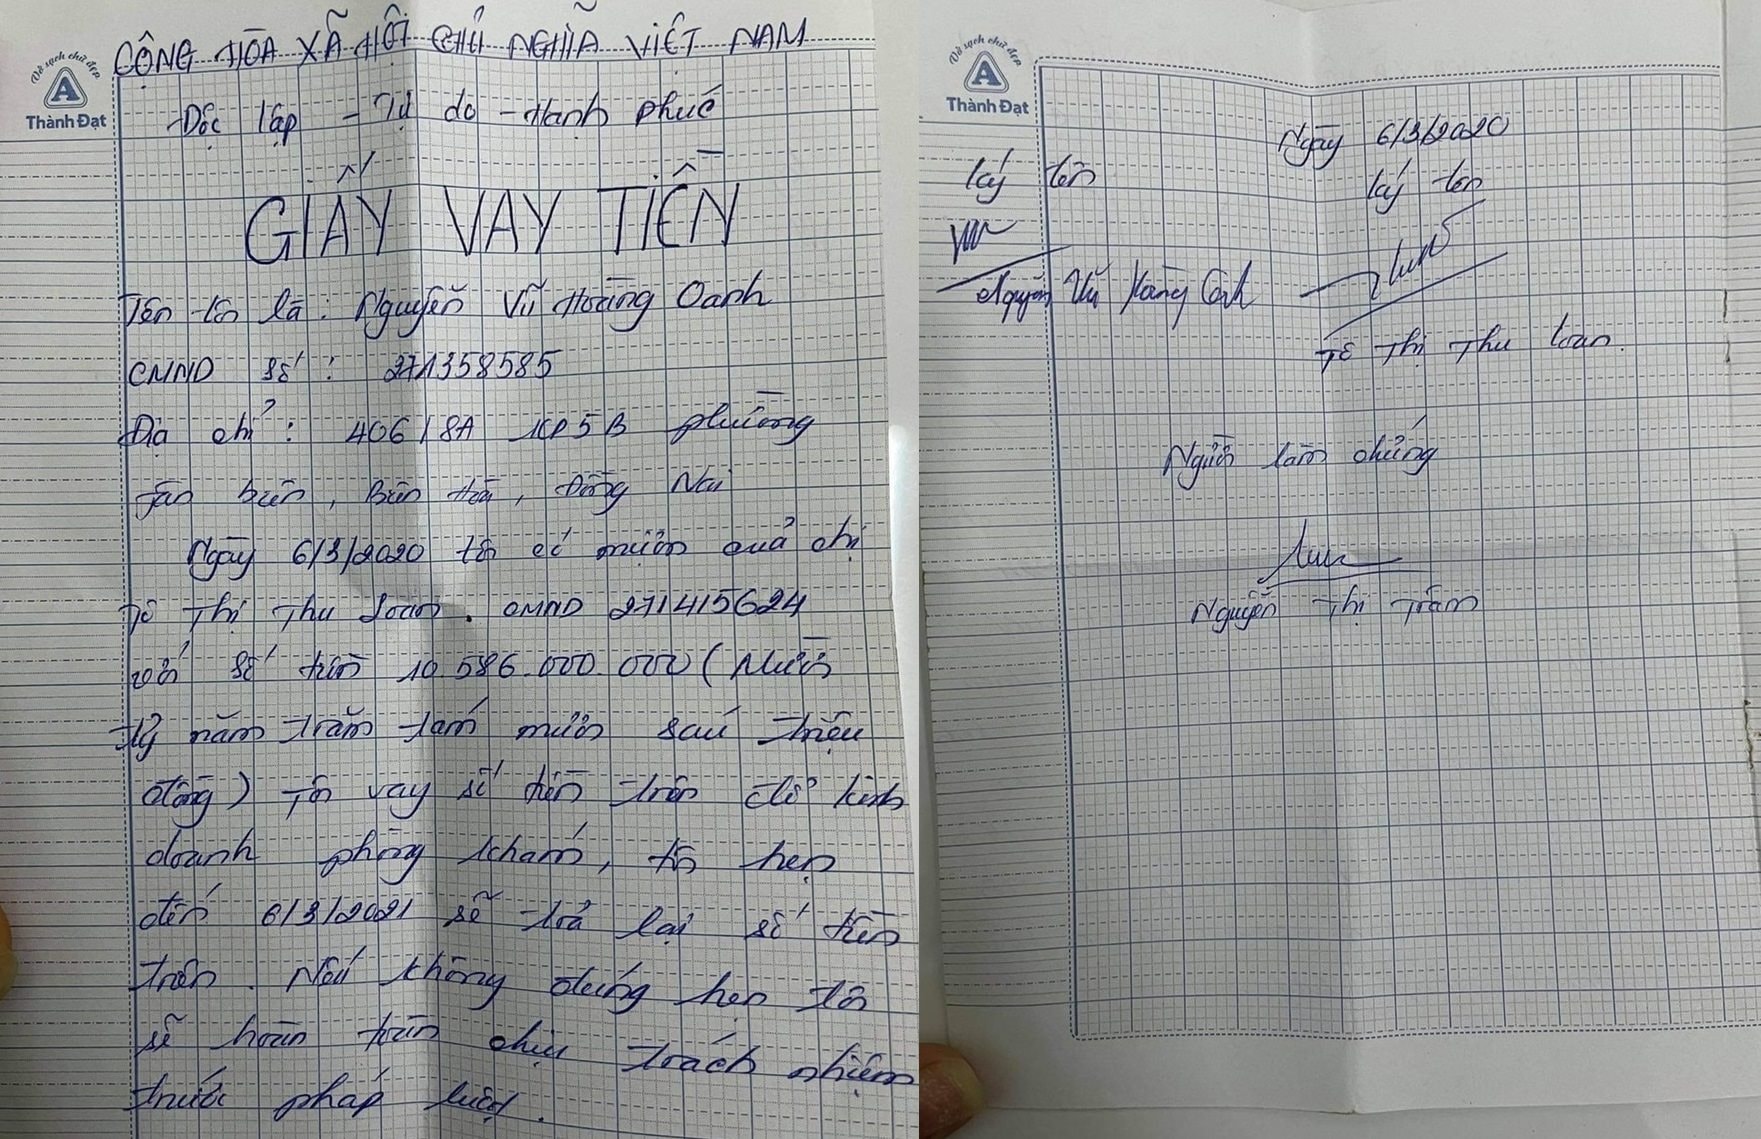 Vở sạch chữ đẹp
A
Thành Đạt
CỘNG HÒA XÃ HỘI CHỦ NGHĨA VIỆT NAM
Độc lập - Tự do - Hạnh phúc
GIẤY VAY TIỀN
Tên tôi là: Nguyễn Vũ Hoàng Oanh
CMND số: 271358585
Địa chỉ: 406/8A KP5B phường
Tân biên, Biên Hòa, Đồng Nai
Ngày 6/3/2020 tôi có mượn của chị
Tô Thị Thu Loan. CMND 271415624
với số tiền 10.586.000.000 (Mười
tỷ năm trăm tám mươi sáu triệu
đồng) Tôi vay số tiền trên để kinh
doanh phòng khám, tôi hẹn
đến 6/3/2021 sẽ trả lại số tiền
trên. Nếu không đúng hẹn tôi
sẽ hoàn toàn chịu trách nhiệm
trước pháp luật.
Vở sạch chữ đẹp
A
Thành Đạt
Ngày 6/3/2020
ký tên
ký tên
Nguyễn Vũ Hoàng Oanh
Tô Thị Thu Loan
Người làm chứng
Nguyễn Thị Trâm